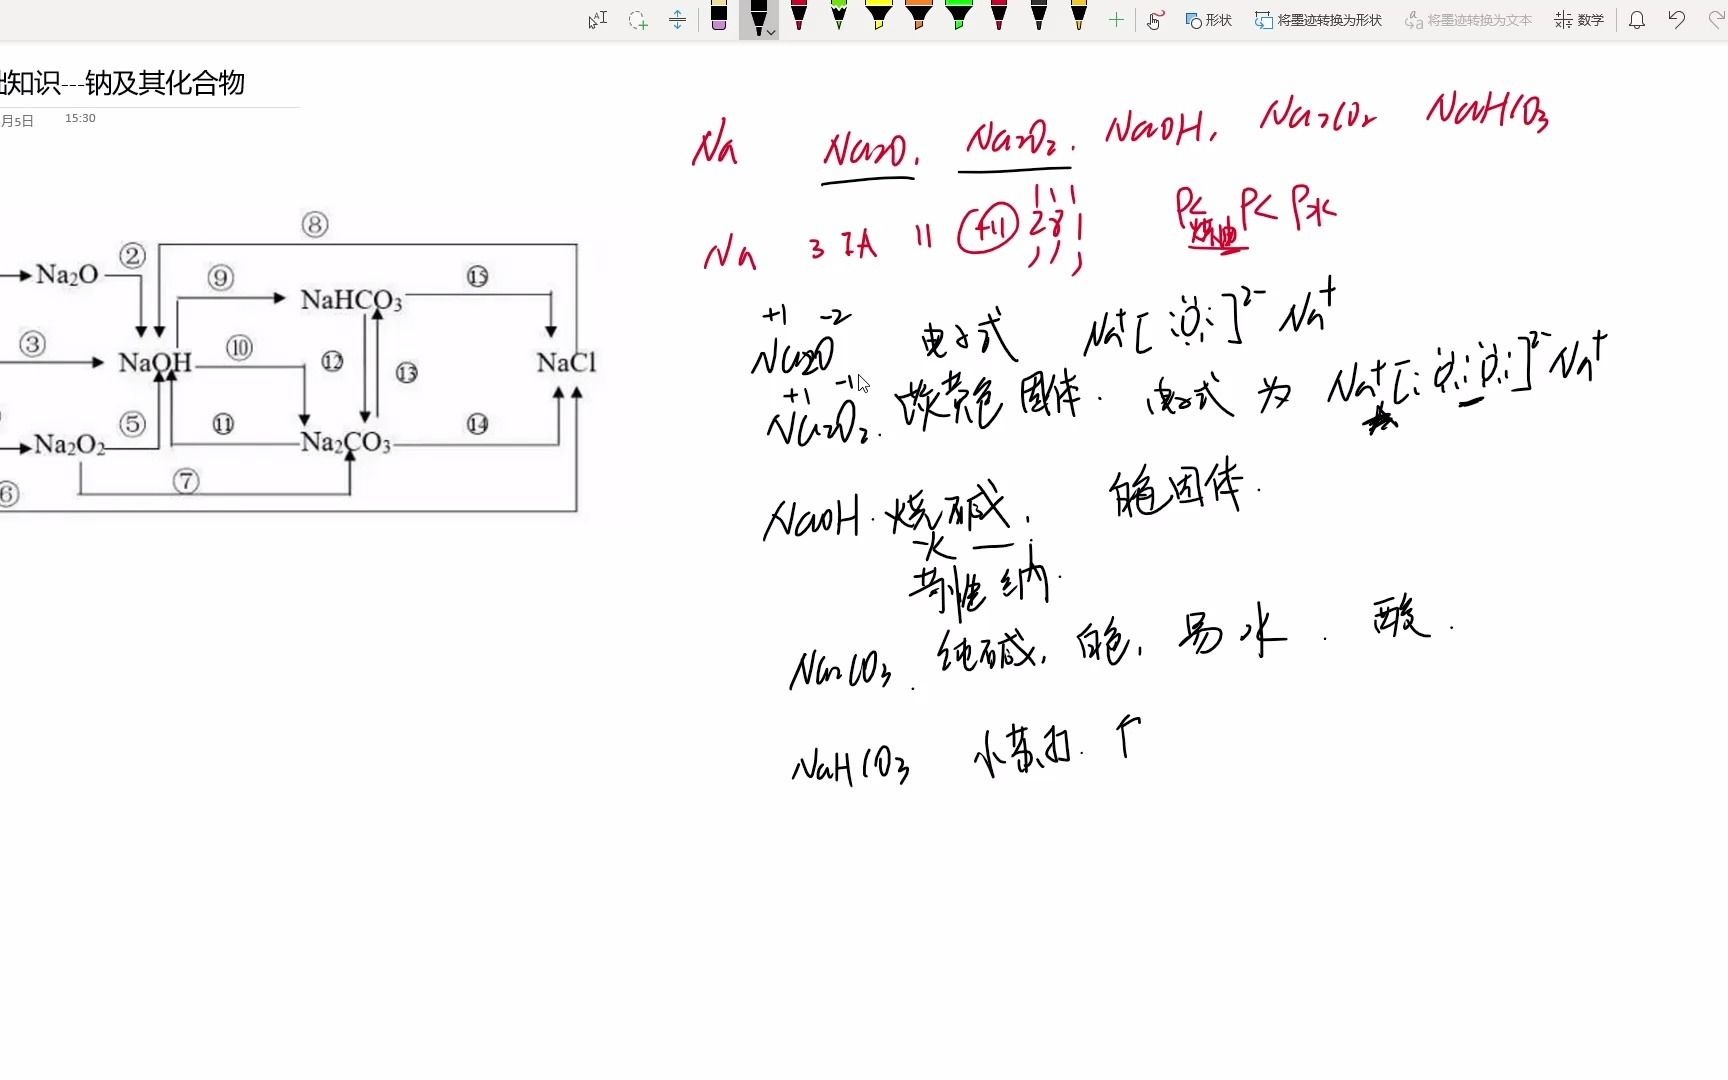 形状 将墨迹转换为形状 将墨迹转换为文本 数学
知识---钠及其化合物
月5日 15:30
Na Na2O. Na2O2. NaOH. Na2CO2 NaHCO3
Na 3 IA 11 +11 2 8 1 ρ煤油<ρ<ρ水
⑧
② ⑨ ⑮
Na₂O NaHCO₃
③ ⑩ ⑫ ⑬
NaOH NaCl
⑤ ⑪ ⑭
Na₂O₂ Na₂CO₃
⑥ ⑦
+1 -2
Na2O 电子式 Na⁺[:Ö:]²⁻Na⁺
+1 -1
Na2O2. 淡黄色固体. 电子式为 Na⁺[:Ö:Ö:]²⁻Na⁺
NaOH. 烧碱. 白色固体.
火
苛性钠.
Na2CO3. 纯碱. 白色. 易水. 酸.
NaHCO3 小苏打. 个